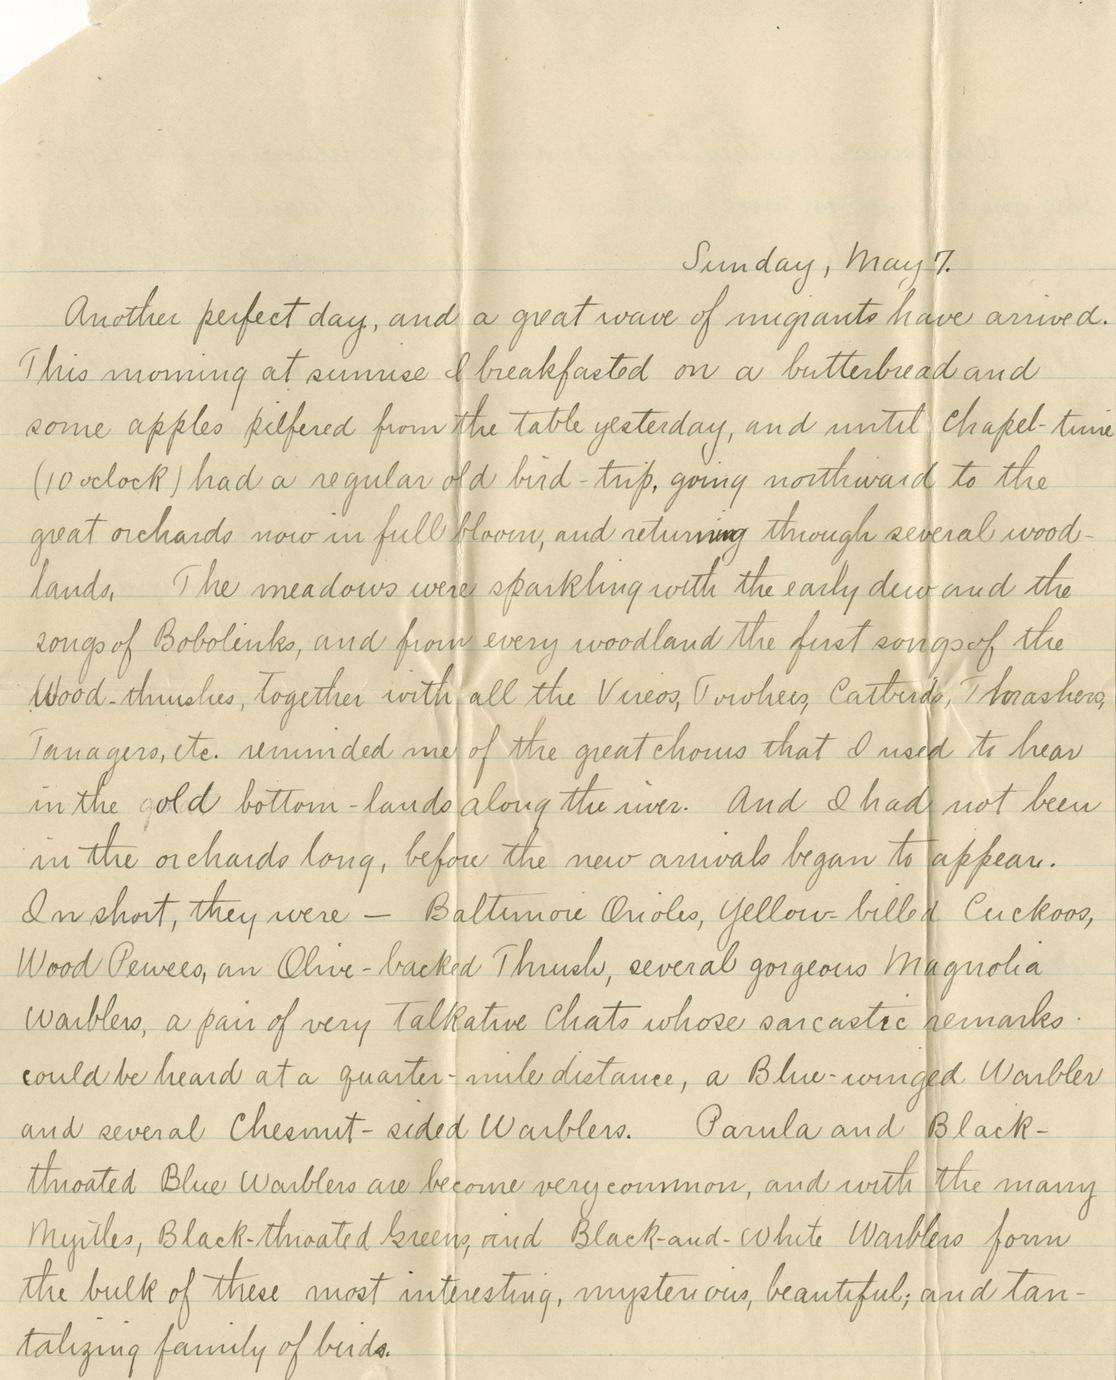 Sunday, May 7.
Another perfect day, and a great wave of migrants have arrived.
This morning at sunrise I breakfasted on a butterbread and
some apples pilfered from the table yesterday, and until chapel-time
(10 oclock) had a regular old bird-trip, going northward to the
great orchards now in full bloom, and returning through several wood-
lands. The meadows were sparkling with the early dew and the
songs of Bobolinks, and from every woodland the first songs of the
Wood-thrushes, together with all the Vireos, Towhees, Catbirds, Thrashers,
Tanagers, etc. reminded me of the great chorus that I used to hear
in the old bottom-lands along the river. And I had not been
in the orchards long, before the new arrivals began to appear.
In short, they were — Baltimore Orioles, Yellow-billed Cuckoos,
Wood Pewees, an Olive-backed Thrush, several gorgeous Magnolia
Warblers, a pair of very talkative Chats whose sarcastic remarks
could be heard at a quarter-mile distance, a Blue-winged Warbler
and several Chesnut-sided Warblers. Parula and Black-
throated Blue Warblers are become very common, and with the many
Myrtles, Black-throated Greens, and Black-and-White Warblers form
the bulk of these most interesting, mysterious, beautiful; and tan-
talizing family of birds.